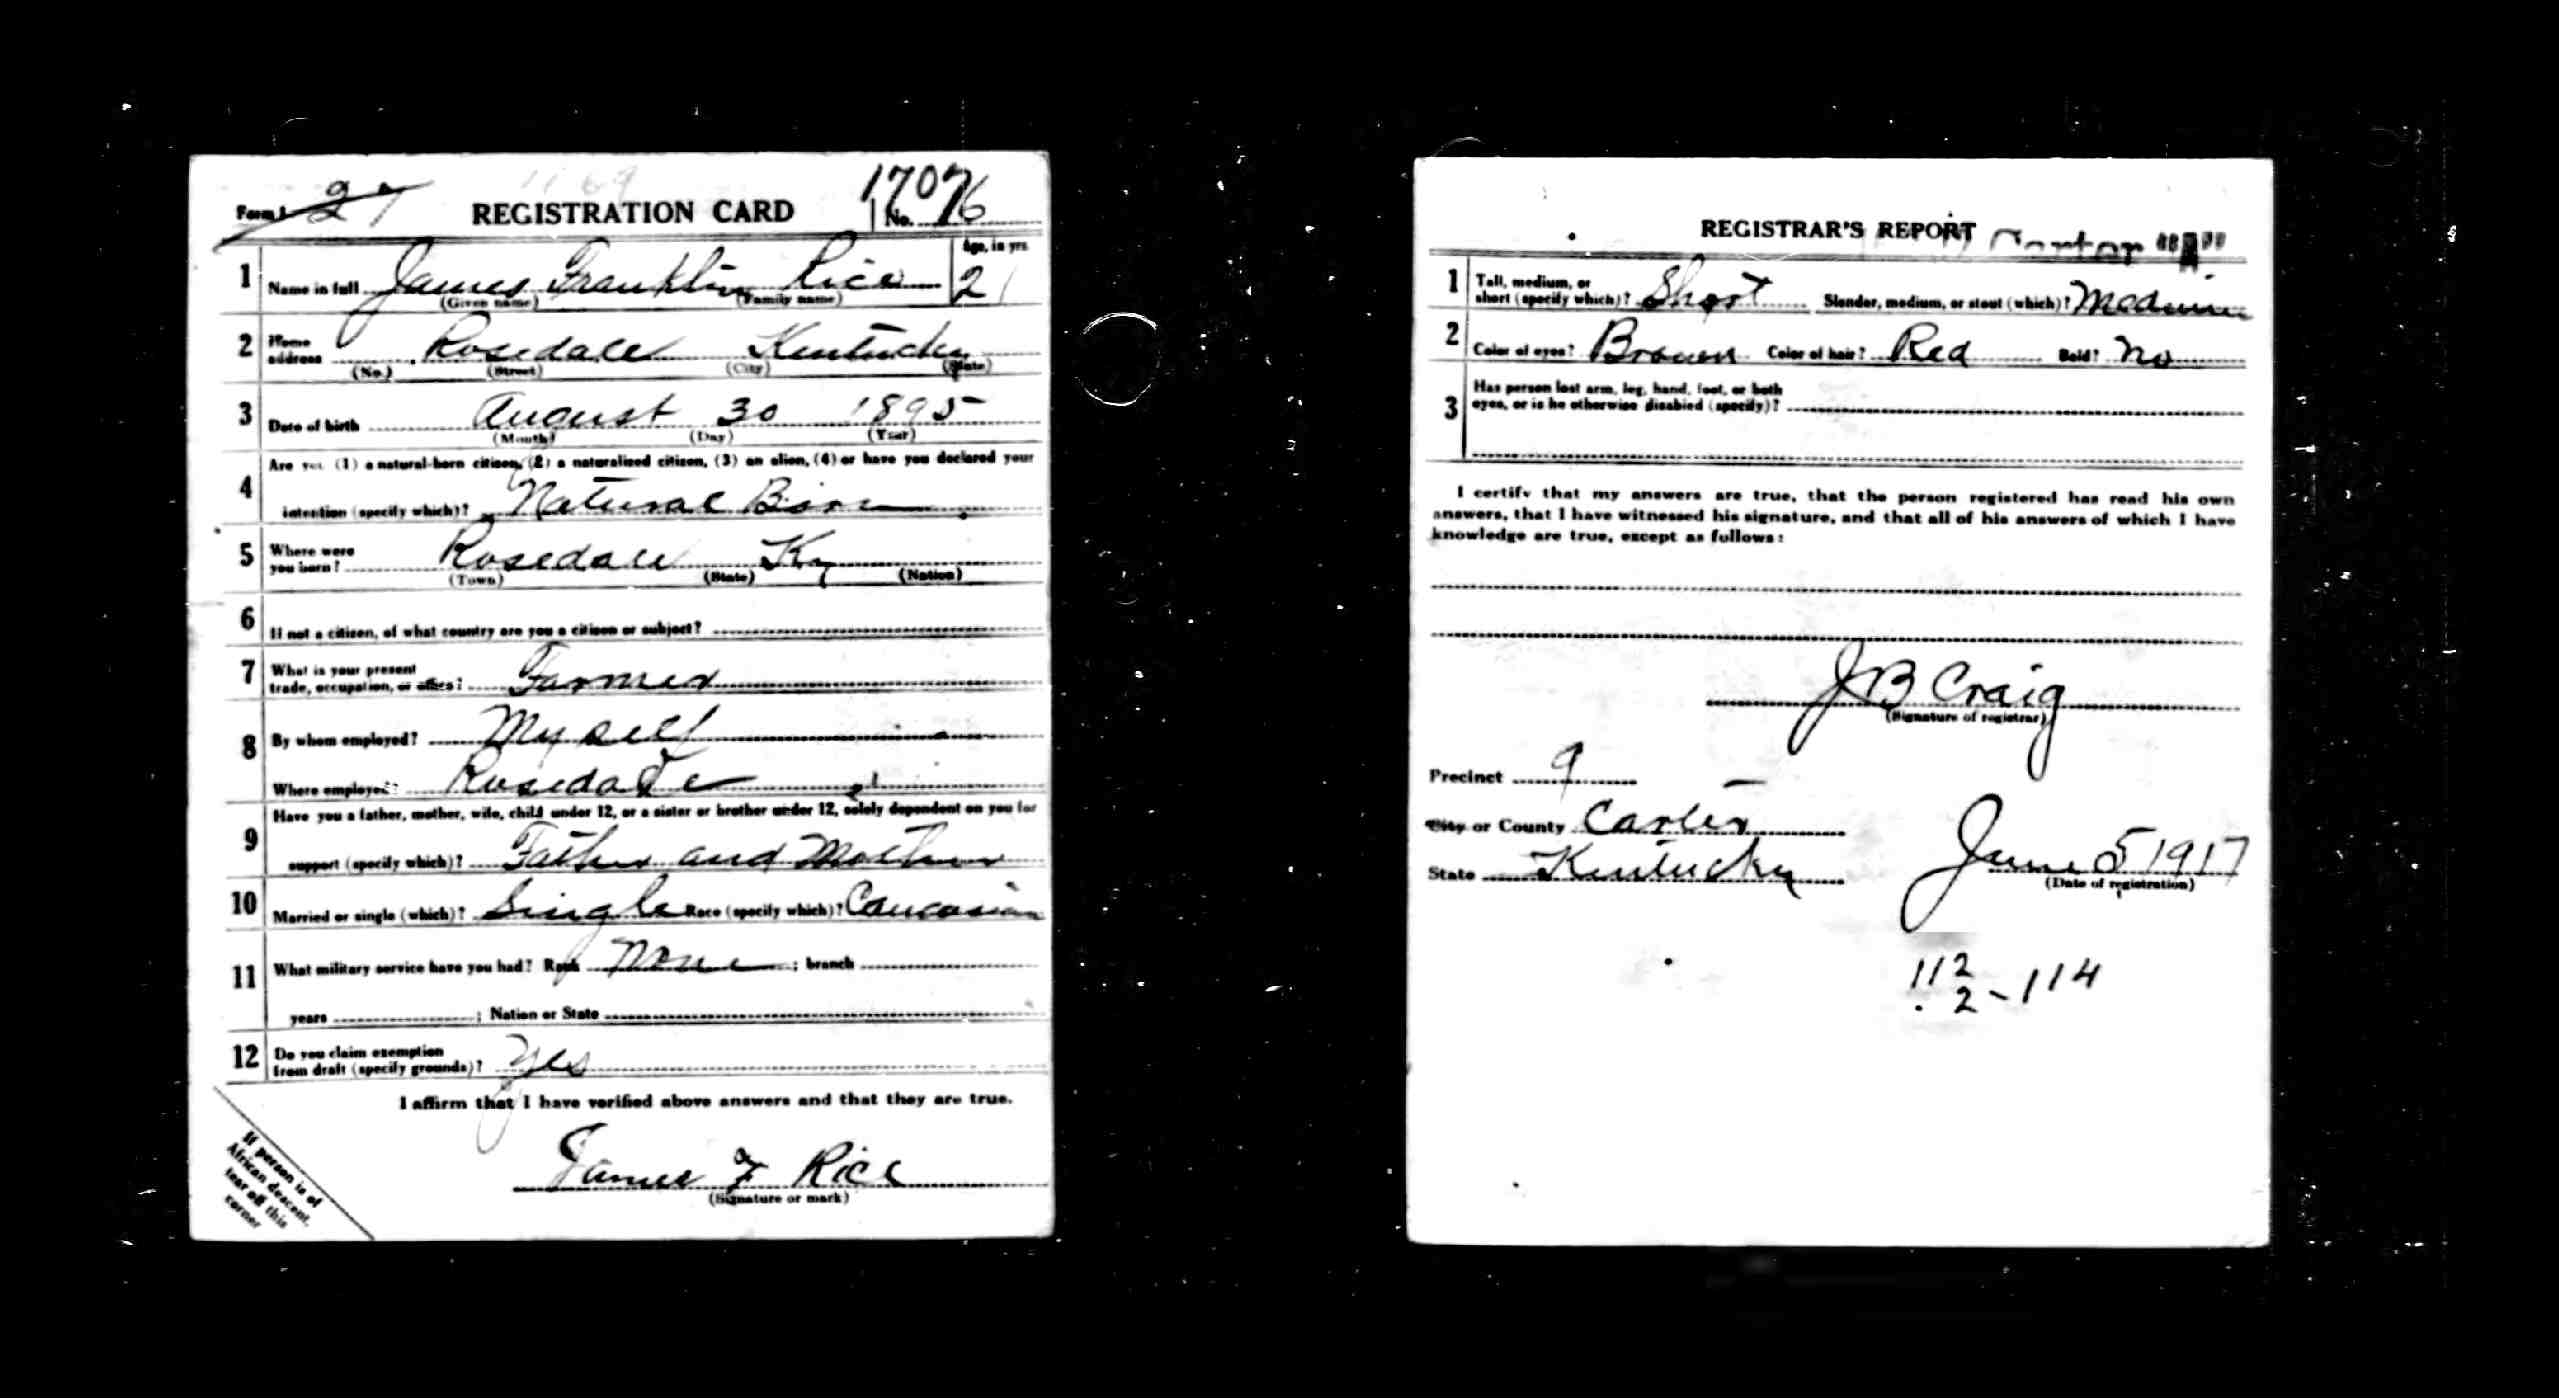 Form 1 27 REGISTRATION CARD No. 76
1 Name in full James Franklin Rice Age, in yrs. 21
(Given name) (Family name)
2 Home address Rosedale Kentucky
(No.) (Street) (City) (State)
3 Date of birth August 30 1895
(Month) (Day) (Year)
4 Are you (1) a natural-born citizen, (2) a naturalized citizen, (3) an alien, (4) or have you declared your
intention (specify which)? Natural Born
5 Where were you born? Rosedale Ky
(Town) (State) (Nation)
6 If not a citizen, of what country are you a citizen or subject?
7 What is your present
trade, occupation, or office? Farmer
8 By whom employed? My self
Where employed? Rosedale
9 Have you a father, mother, wife, child under 12, or a sister or brother under 12, solely dependent on you for
support (specify which)? Father and Mother
10 Married or single (which)? Single Race (specify which)? Caucasian
11 What military service have you had? Rank None ; branch
years ; Nation or State
12 Do you claim exemption
from draft (specify grounds)? Yes
I affirm that I have verified above answers and that they are true.
James F Rice
(Signature or mark)
If person is of
African descent,
tear off this
corner
REGISTRAR'S REPORT
1 Tall, medium, or
short (specify which)? Short Slender, medium, or stout (which)? Medium
2 Color of eyes? Brown Color of hair? Red Bald? No
3 Has person lost arm, leg, hand, foot, or both
eyes, or is he otherwise disabled (specify)?
I certify that my answers are true, that the person registered has read his own
answers, that I have witnessed his signature, and that all of his answers of which I have
knowledge are true, except as follows:
J B Craig
(Signature of registrar)
Precinct 9
City or County Carter
State Kentucky June 5 1917
(Date of registration)
112
2-114